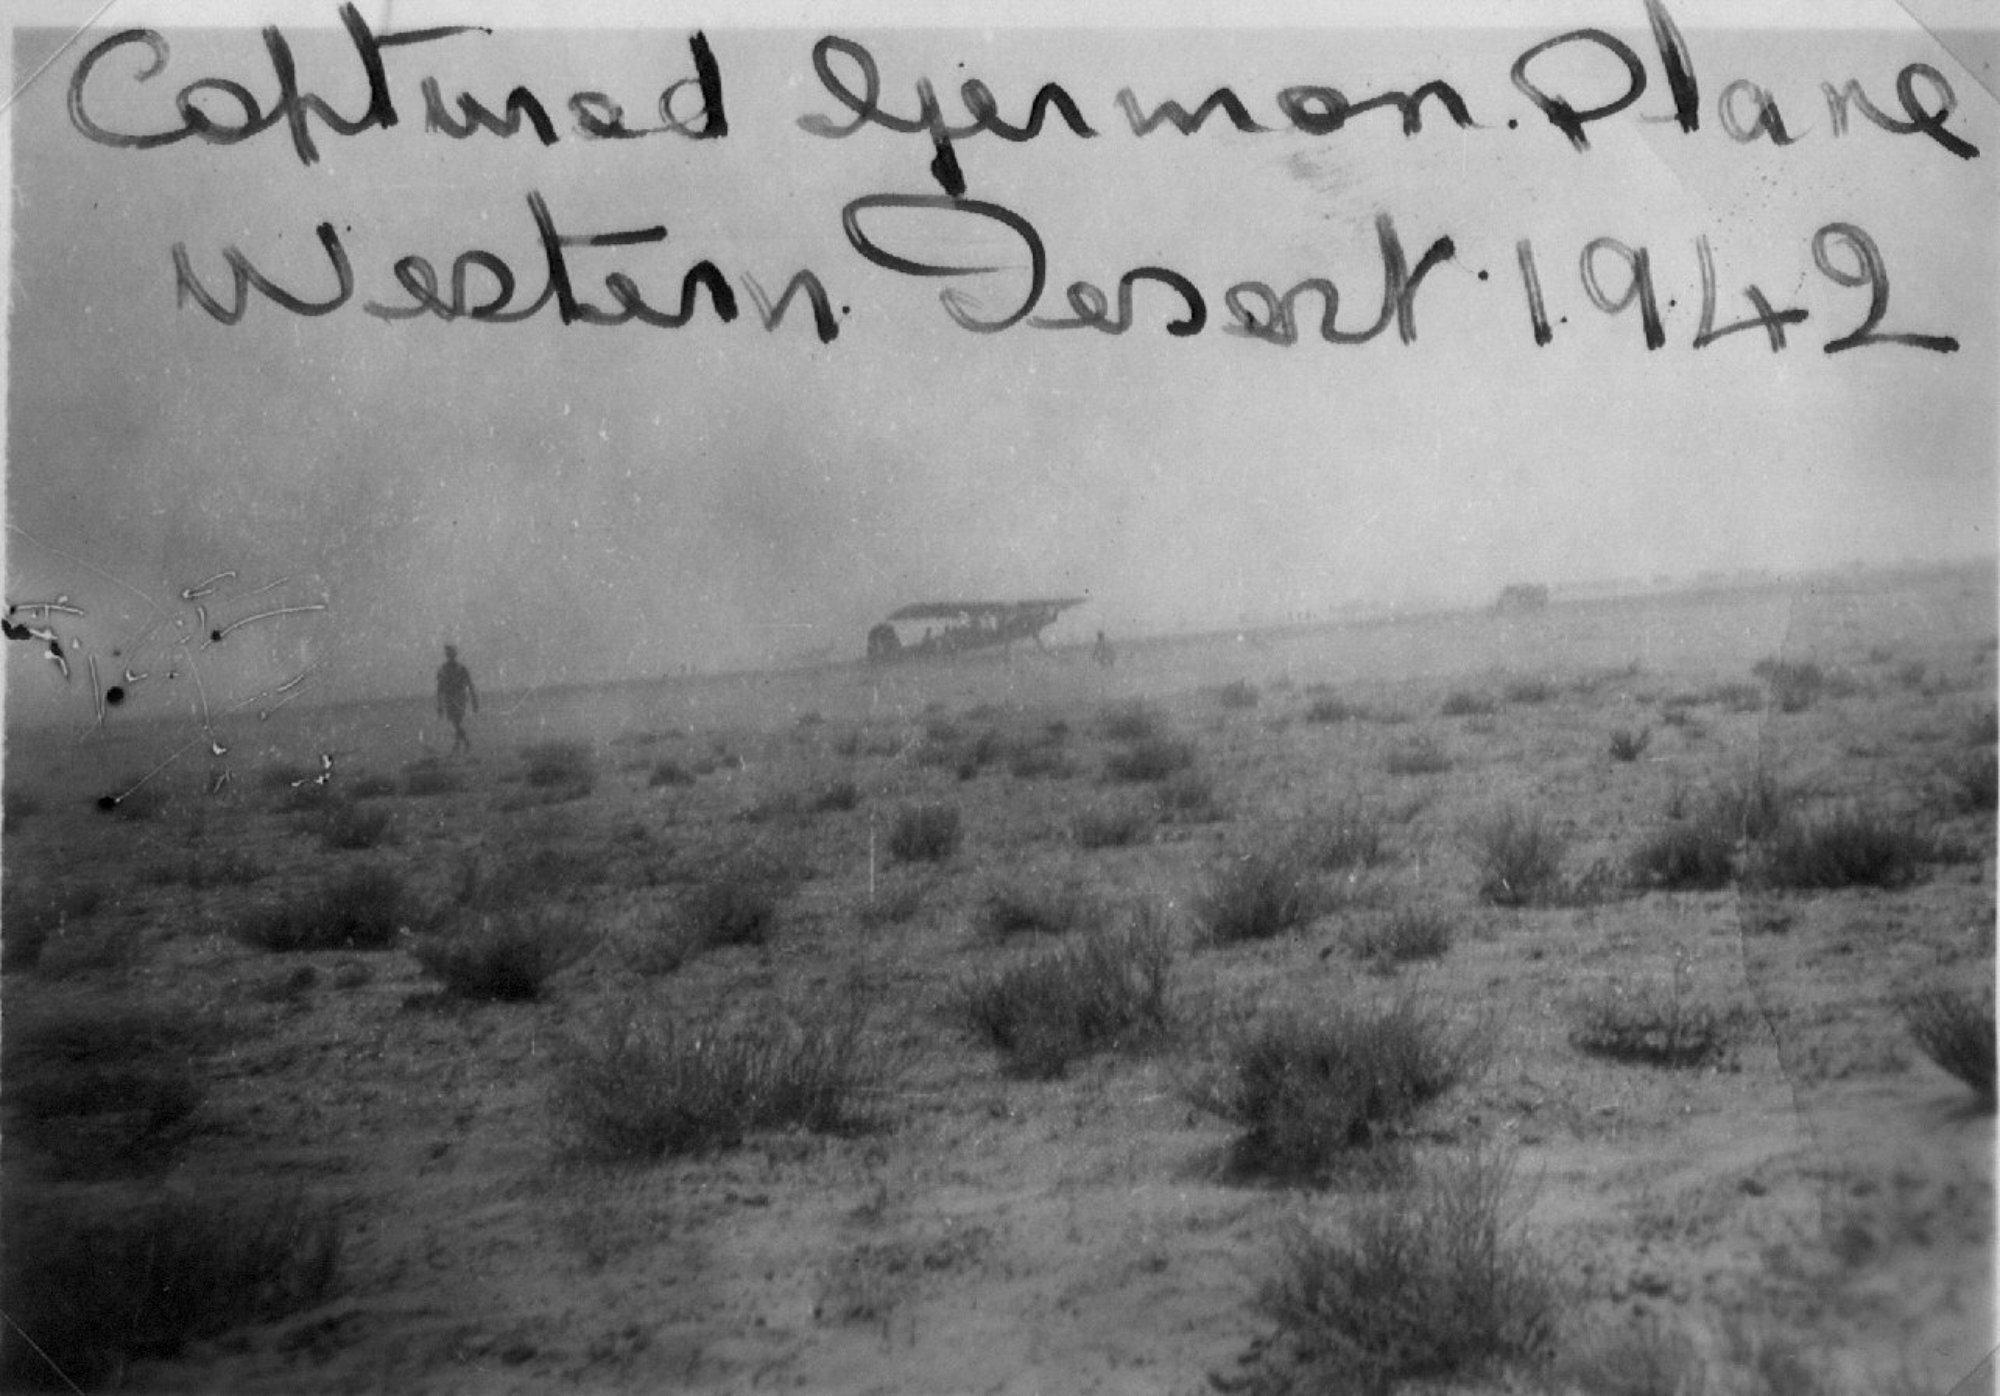 Captured German. Plane
Western. Desert. 1942